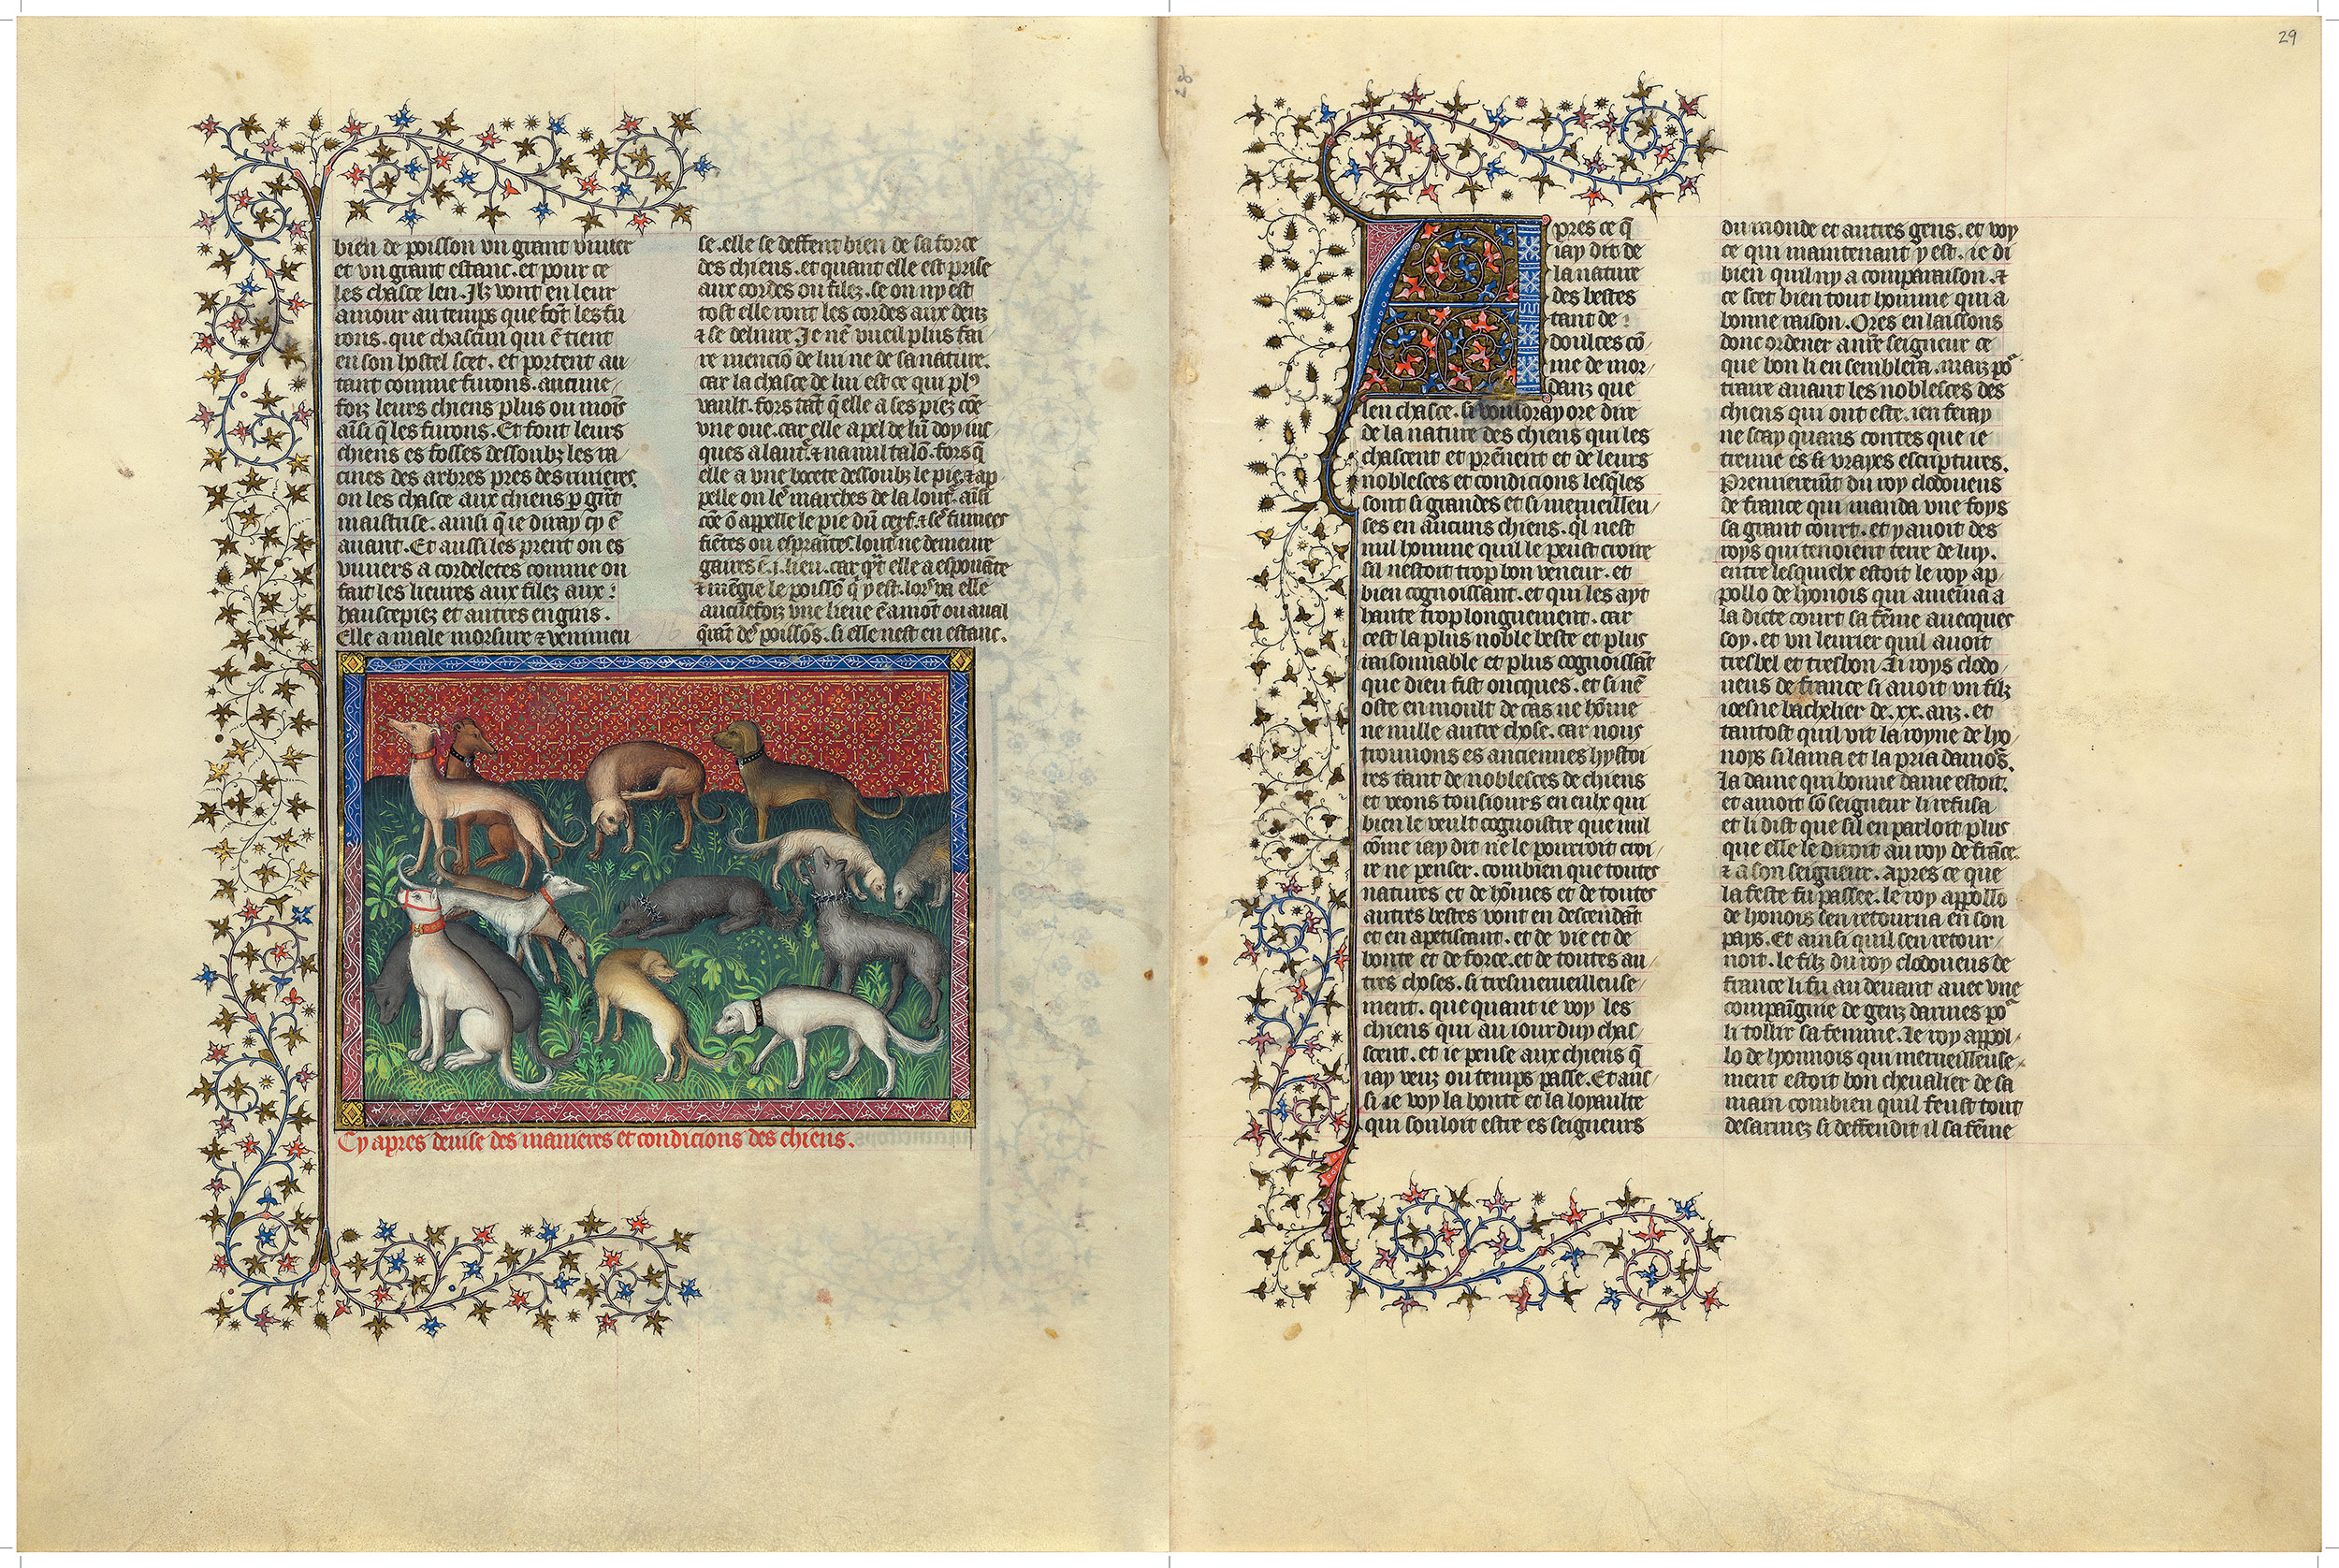 bien de poisson vn grant viuier
et vn grant estanc. et pour ce
les chasce len. Ilz vont en leur
amour au temps que font les fu
rons. que chascun qui en tient
en son hostel scet. et portent au
tant comme furons. aucune
foiz leurs chiens plus ou moins
ainsi q̄ les furons. Et font leurs
chiens es fosses dessoubz les ra
cines des arbres pres des riuieres.
on les chasce aux chiens p grāt
maistrise. ainsi q̄ ie diray cy ē
auant. Et aussi les prent on es
viuiers a cordeletes comme on
fait les lieures aux filez aux
haussepiez et autres engins.
Elle a male morsure et venimeu
se. elle se deffent bien de sa force
des chiens. et quant elle est prise
aux cordes ou filez. se on ny est
tost elle ront les cordes aux denz
et se deliure. Je nē vueil plus fai
re menciō de lui ne de sa nature.
car la chasce de lui est ce qui plꝰ
vault. fors tāt q̄ elle a ses piez cōe
vne oue. car elle a pel de lun doy ius
ques a lautre. et na nul talō. fors q̄
elle a vne bocete dessoubz le pie. et ap
pelle on le marches de la loutre. ainsi
cōe ō appelle le pie dū cerf. et ses fumees
fientes ou espraintes. loutre ne demeure
gaires ē .i. lieu. car qͣnt elle a espouāte
et mēgie le poissō q̄ y est. lors va elle
aucunefoiz vne lieue ē amōt ou aual
querāt des poissōs. si elle nest en estanc.
Cy apres deuise des manieres et condicions des chiens.
29
Apres ce q̄
iay dit de
la nature
des bestes
tant de
doulces cō
me de mor
danz que
len chasce. si vouldray ore dire
de la nature des chiens qui les
chascent et prēnent et de leurs
noblesces et condicions lesq̄les
sont si grandes et si merueilleu
ses en aucuns chiens. ql nest
nul homme quil le peust croire
sil nestoit trop bon veneur. et
bien cognoissant. et qui les ayt
hante trop longuement. car
cest la plus noble beste et plus
raisonnable et plus cognoissāt
que dieu fist oncques. et si nē
oste en moult de cas ne hōme
ne nulle autre chose. car nous
trouuons es anciennes hystoi
res tant de noblesces de chiens
et veons tousiours en eulx qui
bien le veult cognoistre que nul
cōme iay dit ne le pourroit croi
re ne penser. combien que toutes
natures et de hōmes et de toutes
autres bestes vont en descendāt
et en apetissant. et de vie et de
bonte et de force. et de toutes au
tres choses. si tresmerueilleuse
ment. que quant ie voy les
chiens qui au iourduy chas
scent. et ie pense aux chiens q̄
iay veuz ou temps passe. Et aus
si ie voy la bonte et la loyaulte
qui souloit estre es seigneurs
du monde et autres gens. et voy
ce qui maintenant y est. ie di
bien quil ny a comparaison. et
ce scet bien tout homme qui a
bonne raison. Ores en laissons
donc ordener a nr̄e seigneur ce
que bon li en semblera. maiz po
traire auant les noblesces des
chiens qui ont este. ien feray
ne scay quans contes que ie
treuue es si vrayes escriptures.
Premierement du roy clodoueus
de france qui manda vne foys
sa grant court. et y auoit des
roys qui tenoient terre de luy.
entre lesquielx estoit le roy ap
pollo de lyonois qui amena a
la dicte court sa fēme auecques
soy. et vn leurier quil auoit
tresbel et tresbon. Li roys clodo
ueus de france si auoit vn filz
ioesne bachelier de .xx. anz. et
tantost quil vit la royne de lyo
noys si lama et la pria damos.
La dame qui bonne dame estoit.
et amoit sō seigneur li refusa
et li dist que sil en parloit plus
que elle le diroit au roy de frāce.
et a son seigneur. Apres ce que
la feste fu passee. le roy appollo
de lionois sen retourna en son
pays. Et ainsi quil sen retour
noit. le filz du roy clodoueus de
france li fu au deuant auec vne
compaingnie de genz darmes po
li tollir sa femme. Le roy appol
lo de lyonnois qui merueilleuse
ment estoit bon cheualier de sa
main combien quil feust tout
desarmez si deffendit il sa fēme